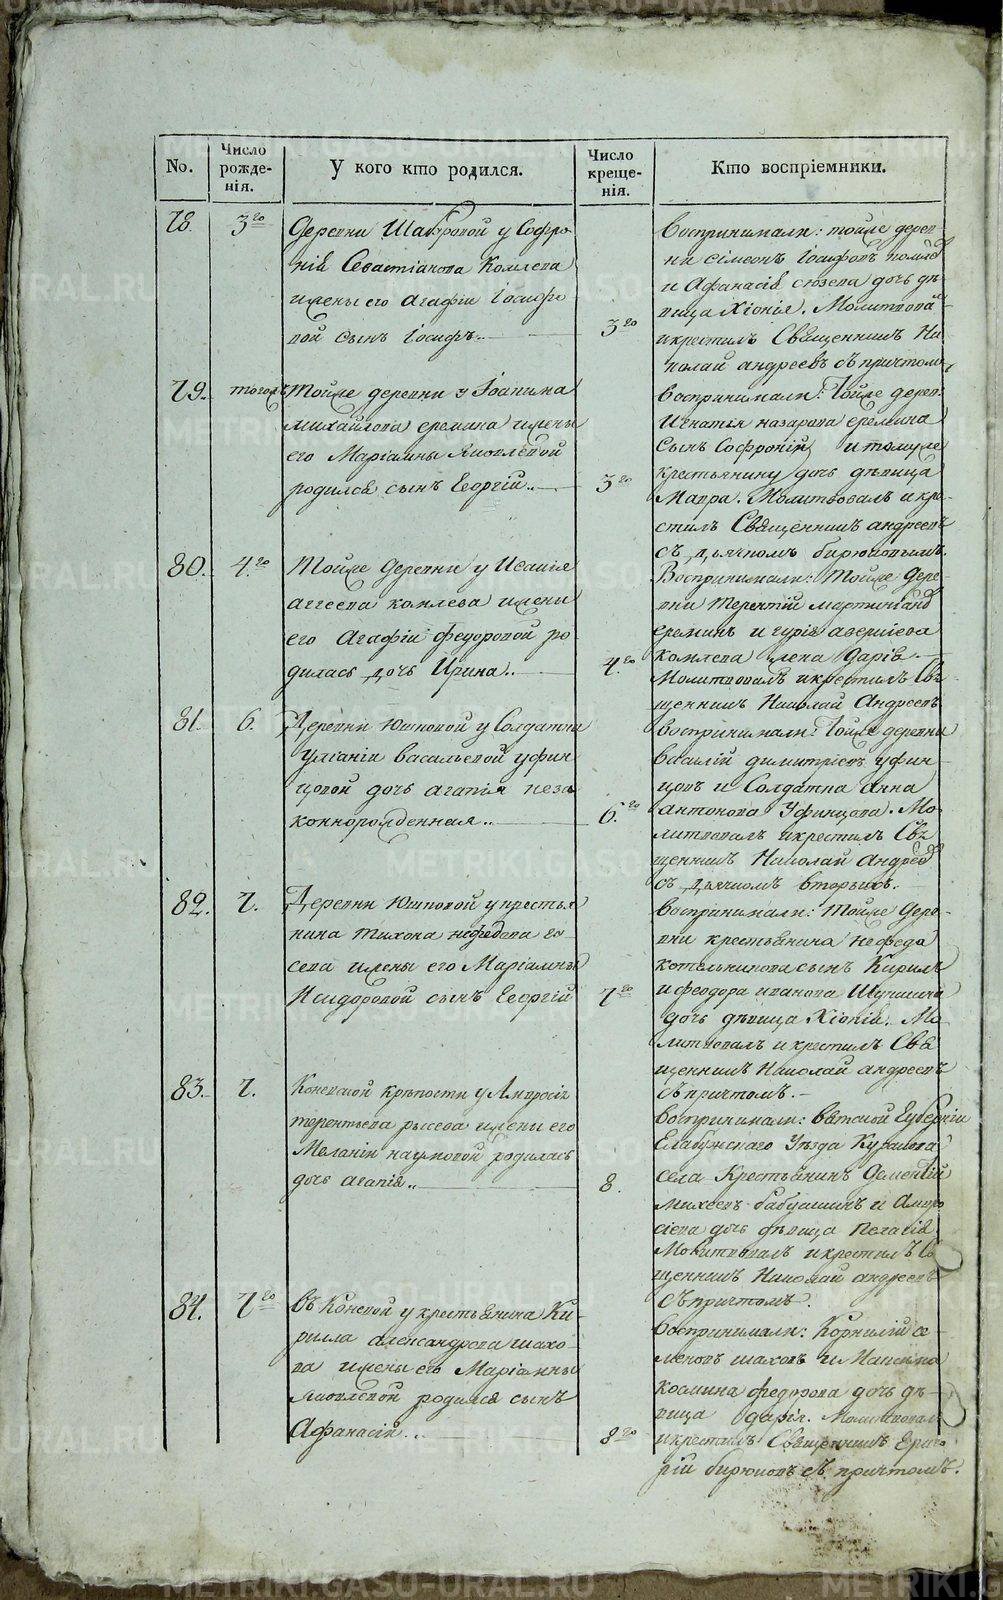 No.
Число рожденія.
У кого кто родился.
Число крещенія.
Кто воспріемники.
78.
3го
Деревни Шабровой у Софро
нія Севастіанова Комлева
жены его Агафіи Іосифо
вой сынъ Іосифъ..
3го
воспринимали: тойже дерев
ни Симеонъ Іосифовъ
и Афанасія дочь дѣ
вица Хіонія. Молитвовалъ
и крестилъ Священникъ Ни
колай Андреевъ съ причтомъ
79.
тогожъ
Тойже деревни у Іоанна
Михайлова Еремина жены
его Маріамны Яковлевой
родился сынъ Георгій..
3го
воспринимали: Тойже дерев:
Игнатія Назарова Еремина
сынъ Софроній, и томуже
крестьянину дочь дѣвица
Мавра. Молитвовалъ и кре
стилъ Священникъ Андреевъ
съ дьячкомъ Бирюковымъ.
80.
4го
Тойже деревни у Исаія
Аггеева Комлева жены
его Агафіи Федоровой ро
дилась дочь Ирина..
4го
Воспринимали: Тойже дере
вни Терентій
Ереминъ и Гурія Аверкіева
Комлева жена Дарія
Молитвовалъ и крестилъ Свя
щенникъ Николай Андреевъ
81.
6.
Деревни Юшковой у Солдатки
Уліаніи Васильевой Уфин
цовой дочь Агапія неза
коннорожденная..
6.го
воспринимали: Тойже деревни
Василій Димитріевъ Уфин
цовъ и Солдатка Анна
Антонова Уфинцова. Мо
литвовалъ и крестилъ Свя
щенникъ Николай Андреев
съ дьячкомъ вторымъ.
82.
7.
Деревни Юшковой у крестья
нина Тихона Нефедова
жены его Маріамны
Исидоровой сынъ Георгій
7го
воспринимали: Тойже дере
вни крестьянина Нефеда
Котельникова сынъ Кирилъ
и Феодора Иванова
дочь дѣвица Хіонія. Мо
литвовалъ и крестилъ Свя
щенникъ Николай Андреевъ
съ причтомъ.
83.
7.
Коневской крѣпости у Амвросія
Терентьева жены его
Меланіи Наумовой родилась
дочь Агапія..
8.
воспринимали: Вятской Губерніи
Елабужскаго Уѣзда
села Крестьянинъ Дементій
Михеевъ Бабушкинъ и Амвро
сіева дочь дѣвица Пелагія
Молитвовалъ и крестилъ Св
щенникъ Николай Андреевъ
съ причтомъ.
84.
7го
въ Коневой у крестьянина Ки
рилла Александрова Шахо
ва жены его Маріамны
Яковлевой родился сынъ
Афанасій...
8го
воспринимали: Корнилій Се
меновъ Шаховъ и Максима
Космина Федорова дочь дѣ
вица Дарія. Молитвовал
и крестилъ Священникъ Григо
рій Бирюковъ съ причтомъ.
METRIKI.GASO-URAL.RU